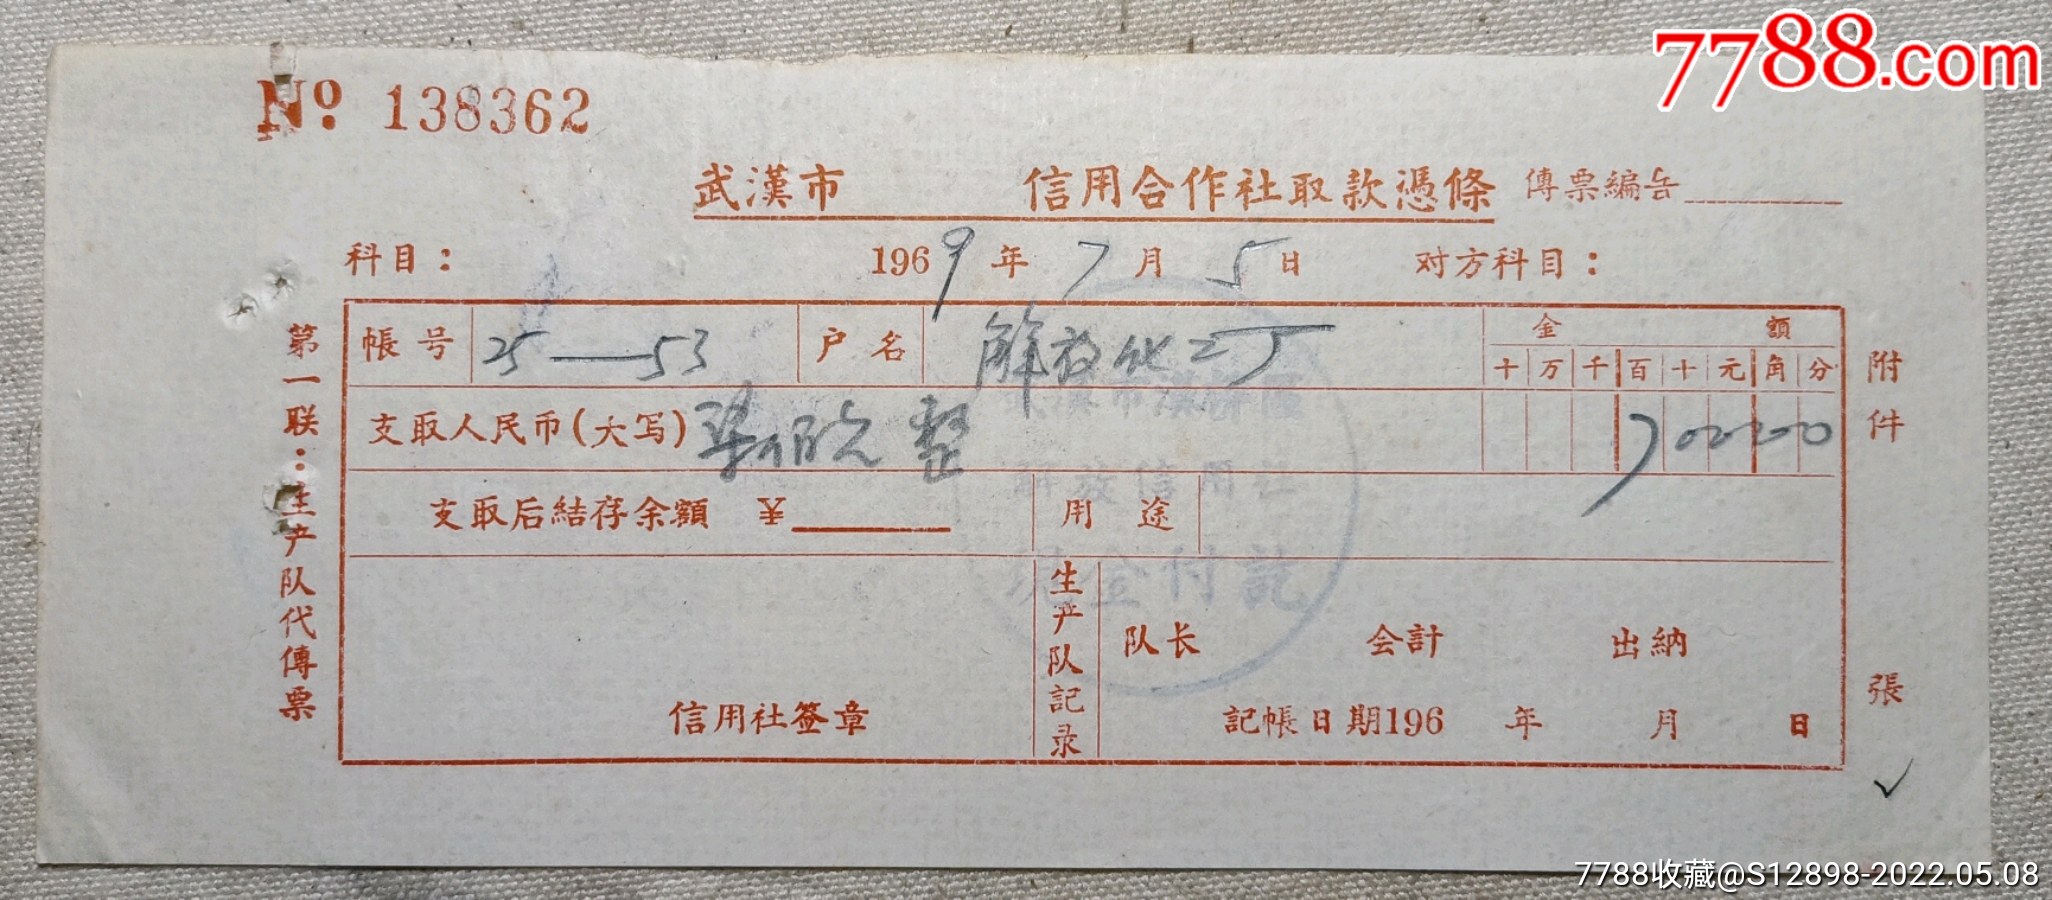 7788.com
№ 138362
武漢市 信用合作社取款憑條 傳票編号
科目： 1969年7月5日 对方科目：
帳号 25—53 户名 解放化工厂 金額
十万千百十元角分
支取人民币(大写) 柒佰元整 70000
支取后結存余額 ¥ 用途
信用社签章
生产队記录
队长 会計 出納
記帳日期196 年 月 日
第一联：生产队代傳票
附件 張
漢市漢陽區
解放信用社
現金付訖
7788收藏@S12898-2022.05.08